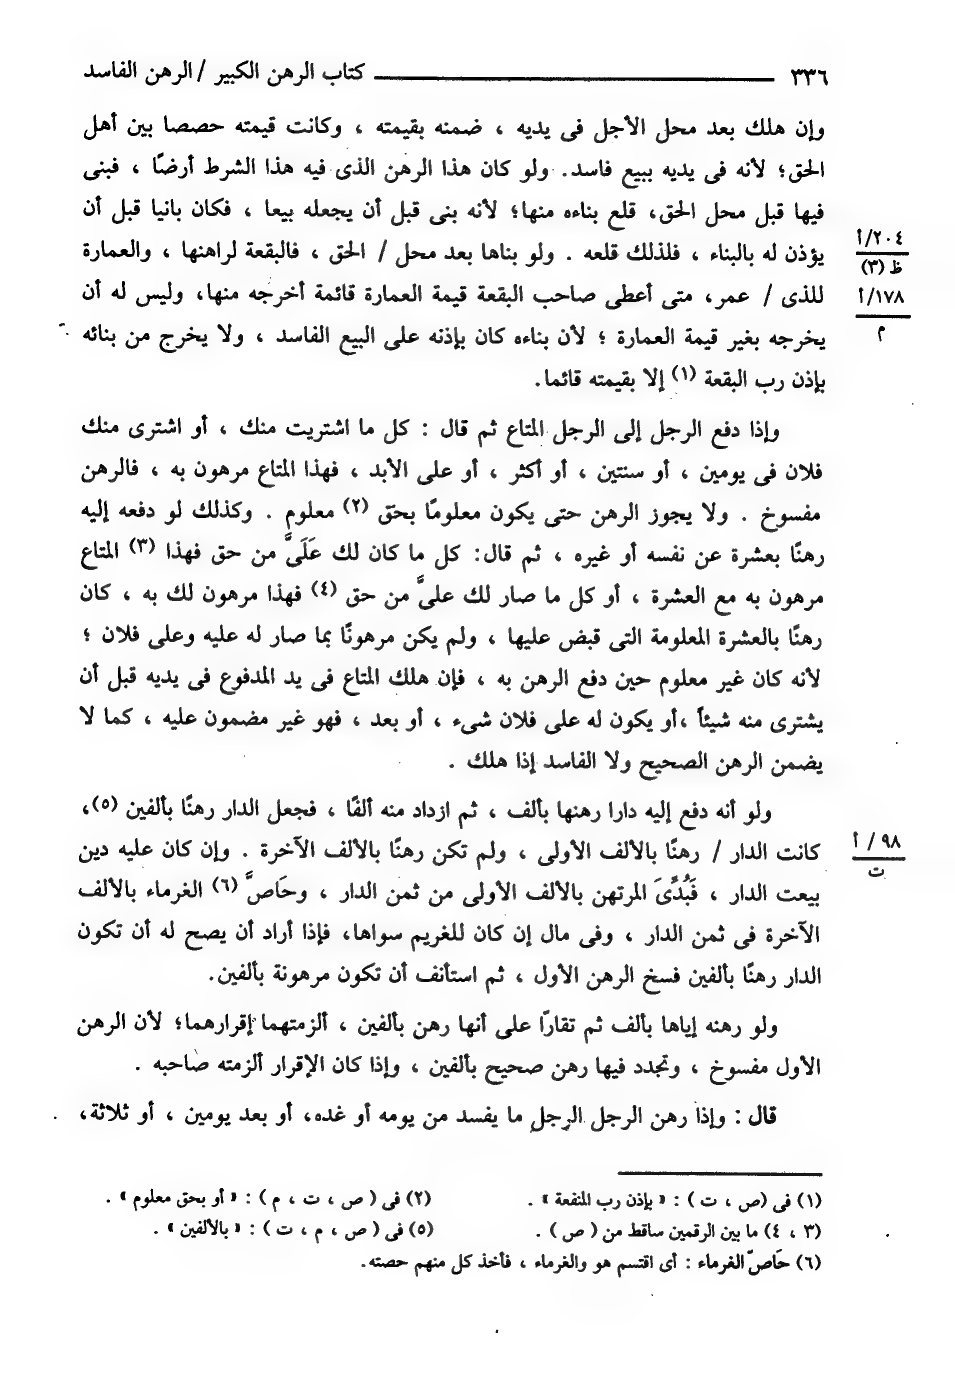 ٣٣٦ كتاب الرهن الكبير / الرهن الفاسد
وإن هلك بعد محل الأجل فى يديه ، ضمنه بقيمته ، وكانت قيمته حصصا بين أهل
الحق؛ لأنه فى يديه ببيع فاسد. ولو كان هذا الرهن الذى فيه هذا الشرط أرضًا ، فبنى
فيها قبل محل الحق، قلع بناءه منها؛ لأنه بنى قبل أن يجعله بيعا ، فكان بانيا قبل أن
يؤذن له بالبناء ، فلذلك قلعه . ولو بناها بعد محل / الحق ، فالبقعة لراهنها ، والعمارة
للذى / عمر، متى أعطى صاحب البقعة قيمة العمارة قائمة أخرجه منها، وليس له أن
يخرجه بغير قيمة العمارة ؛ لأن بناءه كان بإذنه على البيع الفاسد ، ولا يخرج من بنائه
بإذن رب البقعة (١) إلا بقيمته قائما.
٢٠٤/أ
ظ (٣)
١٧٨/أ
م
وإذا دفع الرجل إلى الرجل المتاع ثم قال : كل ما اشتريت منك ، أو اشترى منك
فلان فى يومين ، أو سنتين ، أو أكثر ، أو على الأبد ، فهذا المتاع مرهون به ، فالرهن
مفسوخ . ولا يجوز الرهن حتى يكون معلومًا بحق (٢) معلوم . وكذلك لو دفعه إليه
رهنًا بعشرة عن نفسه أو غيره ، ثم قال: كل ما كان لك عَلَىَّ من حق فهذا (٣) المتاع
مرهون به مع العشرة ، أو كل ما صار لك علىَّ من حق (٤) فهذا مرهون لك به ، كان
رهنًا بالعشرة المعلومة التى قبض عليها ، ولم يكن مرهونًا بما صار له عليه وعلى فلان ؛
لأنه كان غير معلوم حين دفع الرهن به ، فإن هلك المتاع فى يد المدفوع فى يديه قبل أن
يشترى منه شيئاً ،أو يكون له على فلان شىء ، أو بعد ، فهو غير مضمون عليه ، كما لا
يضمن الرهن الصحيح ولا الفاسد إذا هلك .
ولو أنه دفع إليه دارا رهنها بألف ، ثم ازداد منه ألفًا ، فجعل الدار رهنًا بألفين (٥)،
كانت الدار / رهنًا بالألف الأولى ، ولم تكن رهنًا بالألف الآخرة . وإن كان عليه دين
بيعت الدار ، فَبُدِّىَ المرتهن بالألف الأولى من ثمن الدار ، وحَاصَّ (٦) الغرماء بالألف
الآخرة فى ثمن الدار ، وفى مال إن كان للغريم سواها، فإذا أراد أن يصح له أن تكون
الدار رهنًا بألفين فسخ الرهن الأول ، ثم استأنف أن تكون مرهونة بألفين.
٩٨ / أ
ت
ولو رهنه إياها بألف ثم تقارًا على أنها رهن بألفين ، ألزمتهما إقرارهما؛ لأن الرهن
الأول مفسوخ ، وتجدد فيها رهن صحيح بألفين ، وإذا كان الإقرار ألزمته صاحبه .
قال : وإذا رهن الرجل الرجل ما يفسد من يومه أو غده، أو بعد يومين ، أو ثلاثة،
(١) فى (ص ، ت ) : « بإذن رب المنفعة » .
(٢) فى ( ص ، ت ، م ) : « أو بحق معلوم » .
(٣ ، ٤) ما بين الرقمين ساقط من ( ص ) .
(٥) فى ( ص ، م ، ت ) : « بالألفين » .
(٦) حَاصّ الغرماء : أى اقتسم هو والغرماء ، فأخذ كل منهم حصته.